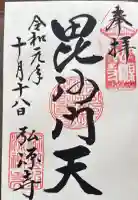 奉拝
毘沙門天
令和元年
十月十八日
弘源寺